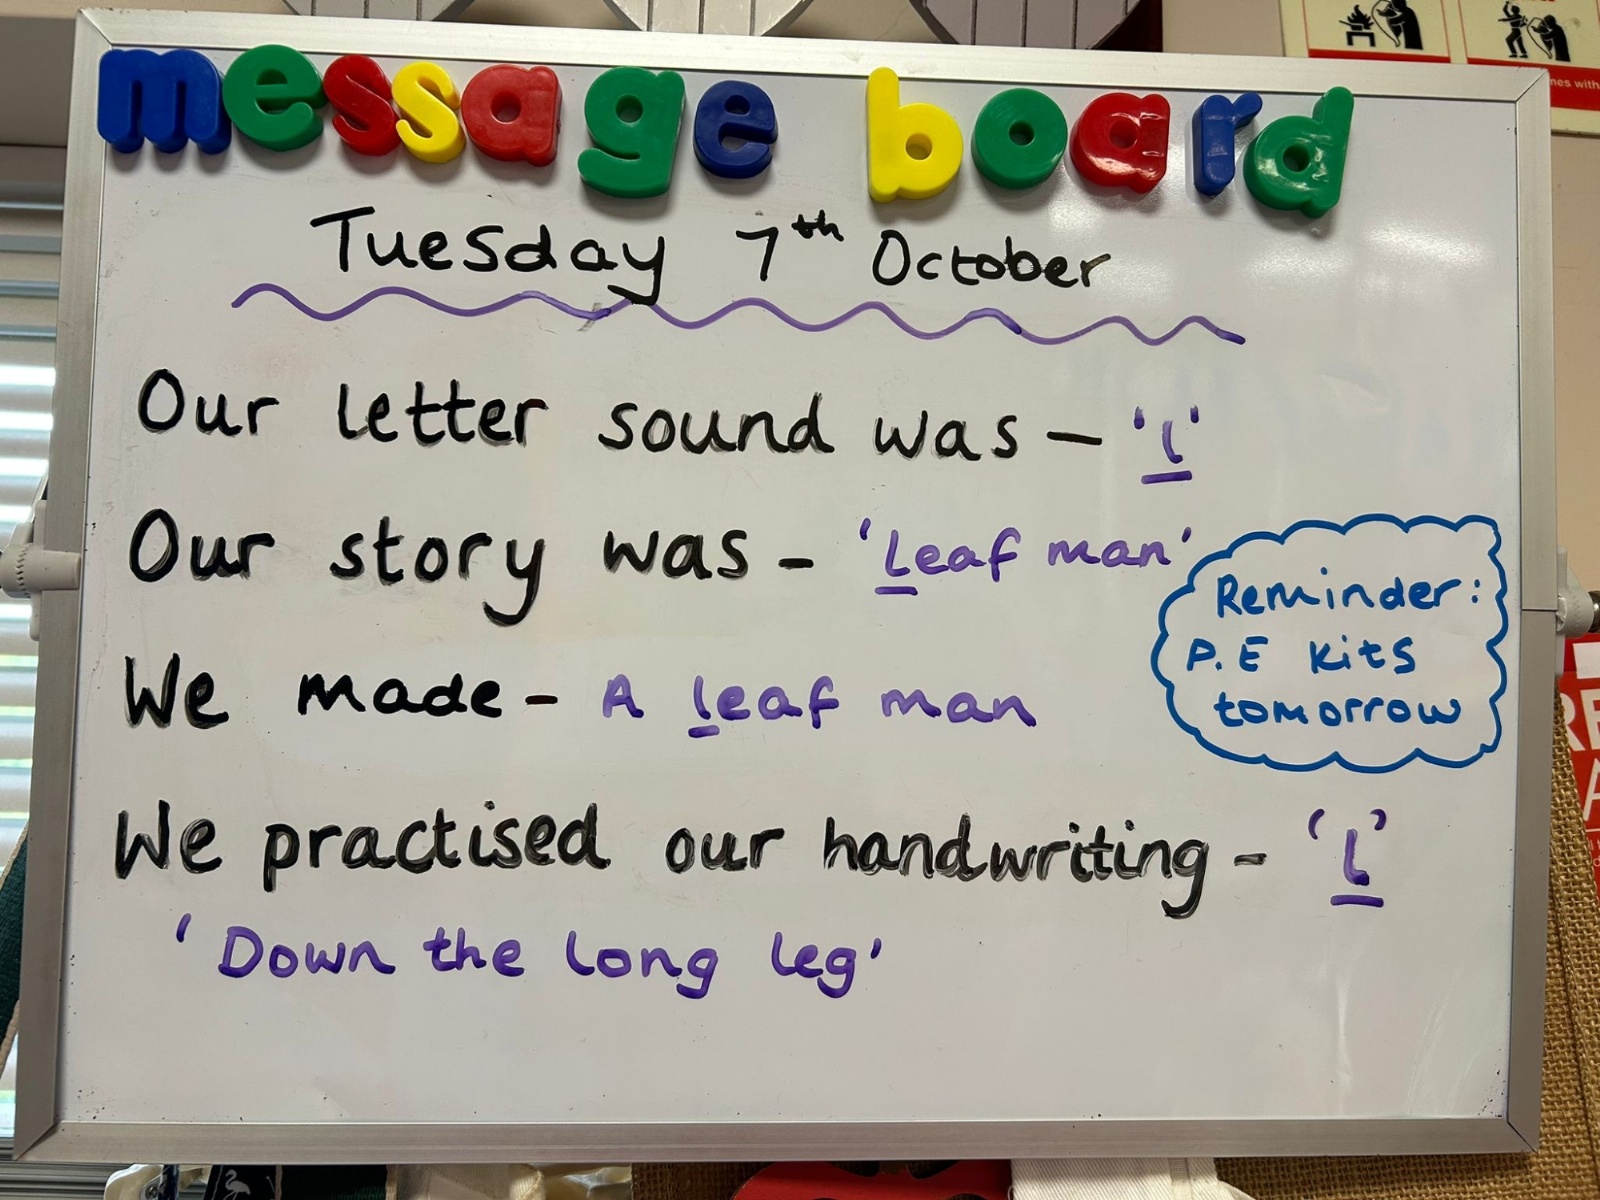 message board
Tuesday 7th October
Our letter sound was – 'l'
Our story was – 'Leaf man'
We made – A leaf man
We practised our handwriting – 'l'
'Down the long leg'
Reminder:
P.E kits
tomorrow